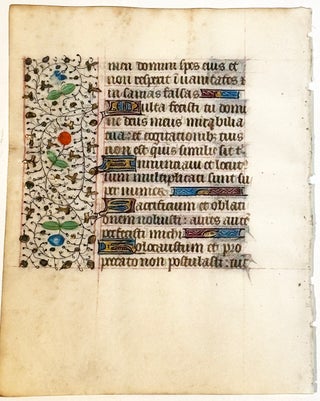 men domini spes eius et
non respexit i vanitates &
insanias falsas
Multa fecisti tu domi
ne deus meus mirabilia
tua: et cogitationib; tuis
non est quis similis sit t
Annunciavi et locut
sum multiplicati sunt su
per numerū
Sacrificium et oblati
onem noluisti: aures aute
perfecisti michi
Holocaustum et pro
peccato non postulasti: tūc